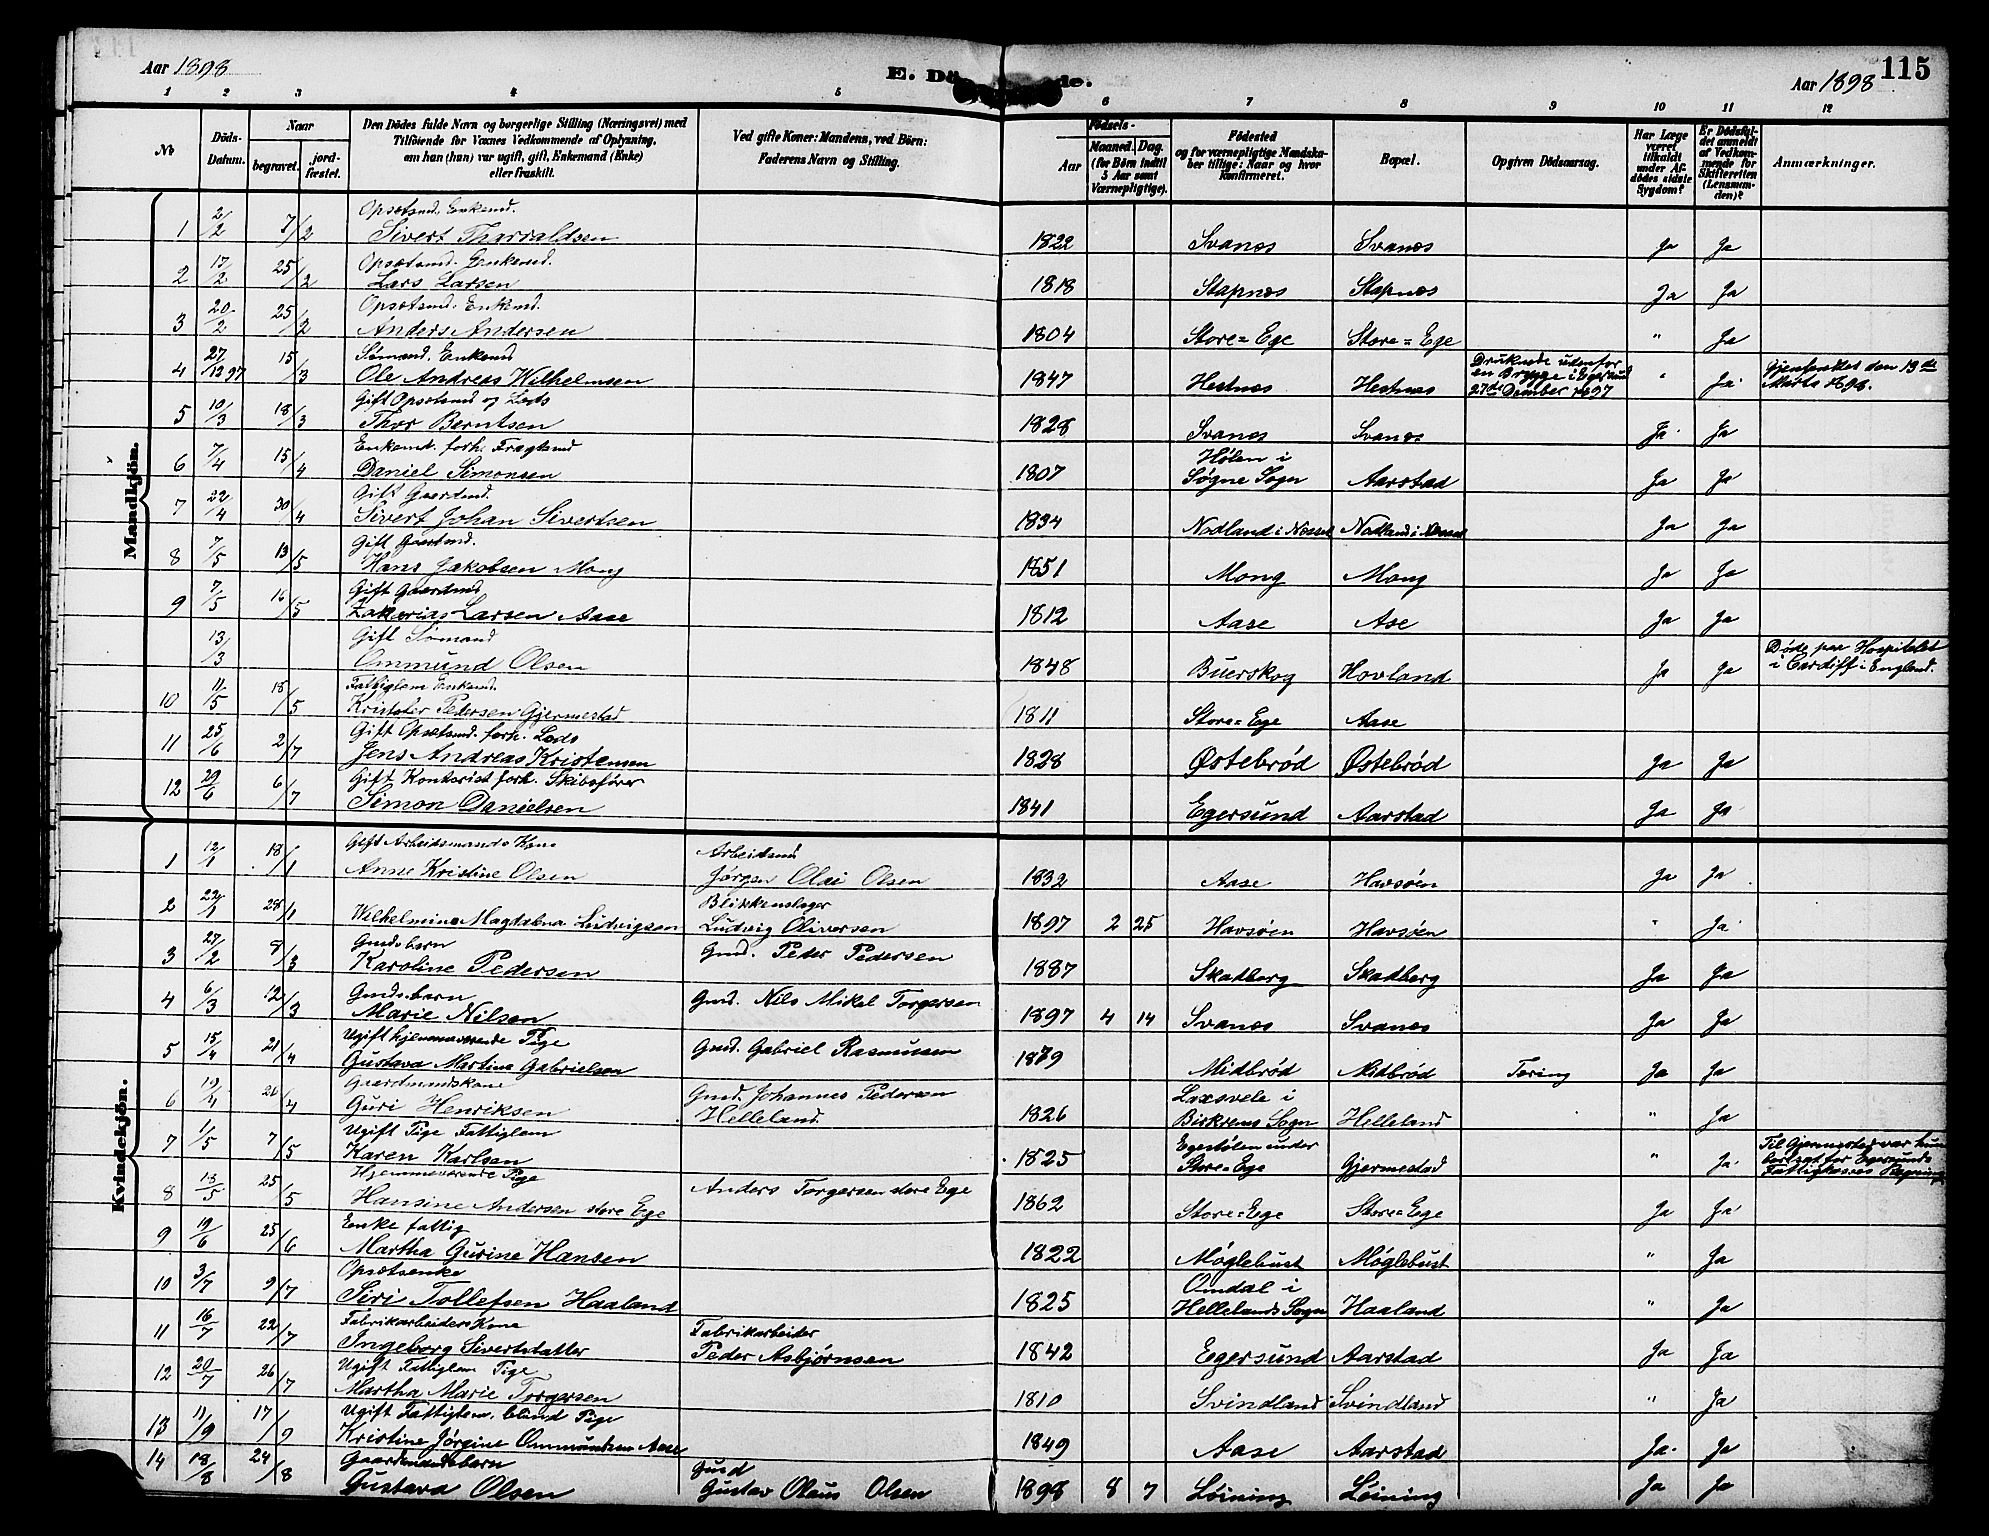 Aar 1898
E. Dö de.
Aar 1898
115
1 2 3 4 5 6 7 8 9 10 11 12
No
Döds-Datum.
Naar
begravet.
jord-fæstet.
Den Dödes fulde Navn og borgerlige Stilling (Næringsvei) med
Tilföiende for Voxnes Vedkommende af Oplysning,
om han (hun) var ugift, gift, Enkemand (Enke)
eller fraskilt.
Ved gifte Koner: Mandens, ved Börn:
Faderens Navn og Stilling.
Födsels-
Aar
Maaned. Dag.
(for Börn indtil
5 Aar samt
Værnepligtige).
Födested
og for værnepligtige Mandska-
ber tillige: Naar og hvor
konfirmeret.
Bopæl.
Opgiven Dödsaarsag.
Har Læge
været
tilkaldt
under Af-
dödes sidste
Sygdom?
Er Dödsfal-
det anmeldt
af Vedkom-
mende for
Skifteretten
(Lensman-
den)?
Anmærkninger.
Mandkjön.
Opsætsmd. Enkemd.
1 2/2 7/2 Sivert Tharraldsen 1822 Svanæs Svanæs Ja Ja
Opsætsmd. Enkemd.
2 17/2 25/2 Lars Larsen 1818 Stapnæs Stapnæs Ja Ja
Opsætsmd. Enkemd.
3 20/2 25/2 Anders Andersen 1804 Store=Ege Store=Ege " Ja
Sømand. Enkemd
4 27/12 97 15/3 Ole Andreas Wilhelmsen 1847 Hestnæs Hestnæs Druknede udenfor en Brygge i Egersund 27de Dember 1897 " Ja Gjenfunket den 13de Marts 1898.
Gift Opsætsmd og Lods
5 10/3 18/3 Thor Berntsen 1828 Svanæs Svanæs Ja Ja
Enkemd. forh. Fragtmd
6 7/4 15/4 Daniel Simonsen 1807 Hølen i Søgne Sogn Aarstad Ja Ja
Gift Gaardmd.
7 22/4 30/4 Sivert Johan Sivertsen 1834 Nodland i Næsset Nodland i Næsset Ja Ja
Gift Gaardmd.
8 7/5 13/5 Hans Jakobsen Mong 1851 Mong Mong Ja Ja
Gift Gaardmd
9 7/5 16/5 Zakarias Larsen Aase 1812 Aase Ase Ja Ja
Gift Sømand
13/3 Ommund Olsen 1848 Buerskog Hovland Ja Ja Døde paa Hospitalet i Cardiff i England.
Fattiglem Enkemd.
10 11/5 18/5 Kristofer Pedersen Gjermestad 1811 Store=Ege Aase
Gift Opsætsmd. forh. Lods
11 25/6 2/7 Jens Andreas Kristensen 1828 Østebrød Østebrød Ja Ja
Gift Kontorist forh. Skibsfører
12 29/6 6/7 Simon Danielsen 1841 Egersund Aarstad Ja Ja
Kvindekjön.
Gift Arbeidsmands Kone Arbeidsmd
1 12/1 18/1 Anne Kristine Olsen Jørgen Olai Olsen 1832 Aase Havsøen Ja Ja
Blikkenslager
2 22/1 28/1 Wilhelmine Magdalena Ludvigsen Ludvig Oliversen 1897 2 25 Havsøen Havsøen " Ja
Gmds barn
3 27/2 8/3 Karoline Pedersen Gmd. Peder Pedersen 1887 Skadberg Skadberg Ja Ja
Gmds. barn
4 6/3 12/3 Marie Nilsen Gmd. Nils Mikel Torgersen 1897 4 14 Svanæs Svanæs Ja Ja
Ugift hjemmeværende Pige
5 15/4 21/4 Gustava Martine Gabrielsen Gmd. Gabriel Rasmussen 1879 Midbrød Midbrød Tæring Ja Ja
Gaardmandskone
6 19/4 26/4 Guri Henriksen Gmd. Johannes Pedersen Helleland 1826 Laxsvele i Birkrems Sogn Helleland " Ja
Ugift Pige Fattiglem
7 1/5 7/5 Karen Karlsen 1825 Egestølen under Store=Ege Gjermestad " Ja Til Gjermestad var hun bortsat for Egersunds Fattigkasses Regning
Hjemmeværende Pige
8 18/5 25/5 Hansine Andersen store Ege Anders Torgersen store Ege 1862 Store=Ege Store=Ege Ja Ja
Enke fattig
9 19/6 25/6 Martha Gurine Hansen 1822 Møglebust Møglebust " Ja
Opsætsenke
10 3/7 9/7 Siri Tollefsen Haaland 1825 Omdal i Hellelands Sogn Haaland " Ja
Fabrikarbeiders Kone Fabrikarbeider
11 16/7 22/7 Ingeborg Sivertsdatter Peder Asbjørnsen 1842 Egersund Aarstad Ja Ja
Ugift Fattiglem Pige
12 20/7 26/7 Martha Marie Torgersen 1810 Svindland Svindland " Ja
Ugift Fattiglem, blind Pige
13 11/9 17/9 Kristine Jørgine Ommundsen Aase 1849 Aase Aarstad Ja Ja
Gaardmandsbarn Gmd
14 18/8 24/8 Gustava Olsen Gustav Olaus Olsen 1898 8 7 Løining Løining Ja Ja